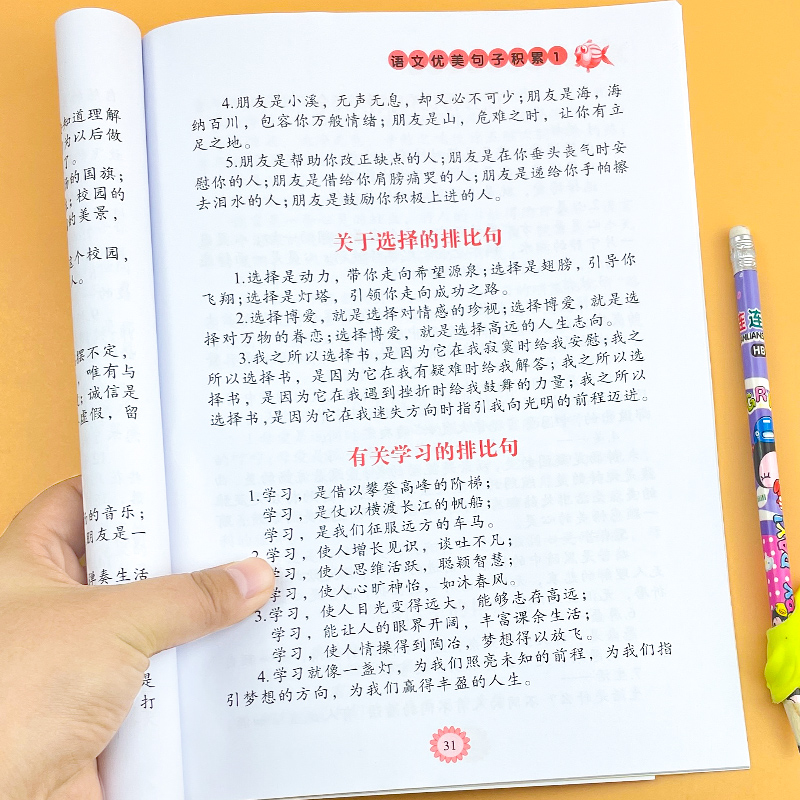 知道理解
为以后做
了。
的国旗；
；校园的
的美景，
个校园，
人。
摆不定，
，唯有与
；诚信是
虚假，留
的音乐；
朋友是一
弹奏生活
是
打
语文优美句子积累1
4.朋友是小溪，无声无息，却又必不可少；朋友是海，海
纳百川，包容你万般情绪；朋友是山，危难之时，让你有立
足之地。
5.朋友是帮助你改正缺点的人；朋友是在你垂头丧气时安
慰你的人；朋友是借给你肩膀痛哭的人；朋友是递给你手帕擦
去泪水的人；朋友是鼓励你积极上进的人。
关于选择的排比句
1.选择是动力，带你走向希望源泉；选择是翅膀，引导你
飞翔；选择是灯塔，引领你走向成功之路。
2.选择博爱，就是选择对情感的珍视；选择博爱，就是选
择对万物的眷恋；选择博爱，就是选择高远的人生志向。
3.我之所以选择书，是因为它在我寂寞时给我安慰；我之
所以选择书，是因为它在我有疑难时给我解答；我之所以选
择书，是因为它在我遇到挫折时给我鼓舞的力量；我之所以
选择书，是因为它在我迷失方向时指引我向光明的前程迈进。
有关学习的排比句
1.学习，是借以攀登高峰的阶梯；
学习，是仗以横渡长江的帆船；
学习，是我们征服远方的车马。
2.学习，使人增长见识，谈吐不凡；
学习，使人思维活跃，聪颖智慧；
学习，使人心旷神怡，如沐春风。
3.学习，使人目光变得远大，能够志存高远；
学习，能让人的眼界开阔，丰富课余生活；
学习，使人情操得到陶冶，梦想得以放飞。
4.学习就像一盏灯，为我们照亮未知的前程，为我们指
引梦想的方向，为我们赢得丰盈的人生。
31
连
HB